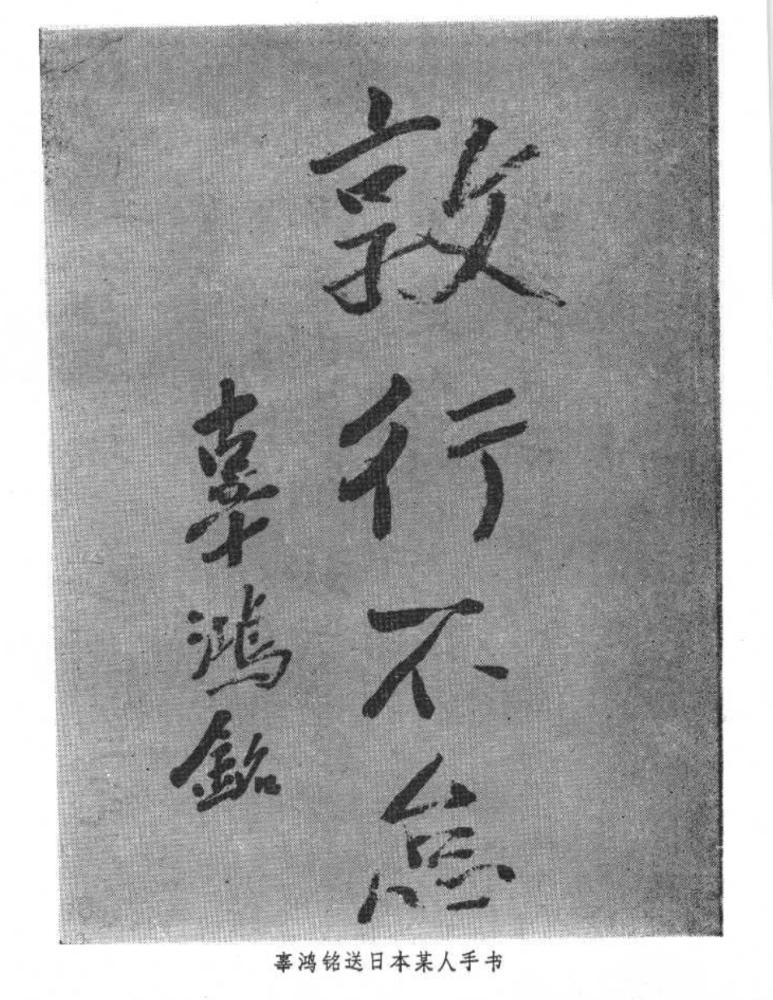 敦行不怠
辜鴻銘
辜鸿铭送日本某人手书